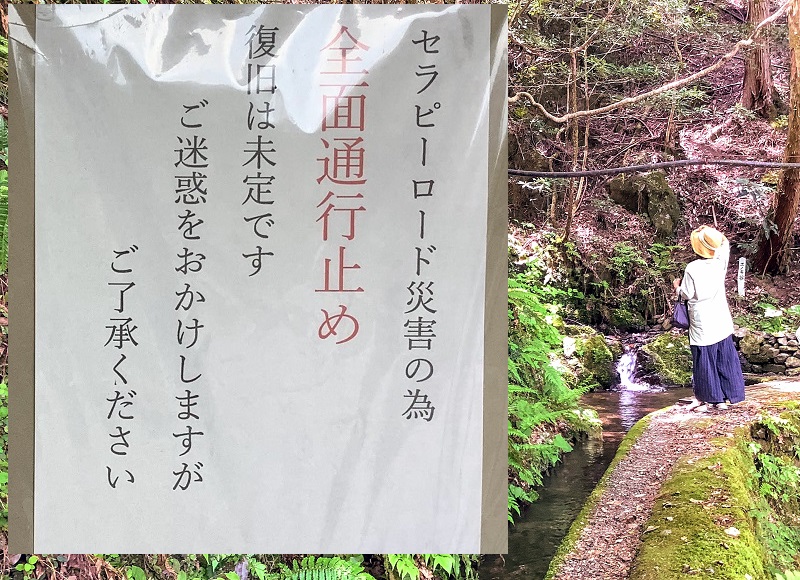 セラピーロード災害の為
全面通行止め
復旧は未定です
ご迷惑をおかけしますが
ご了承ください